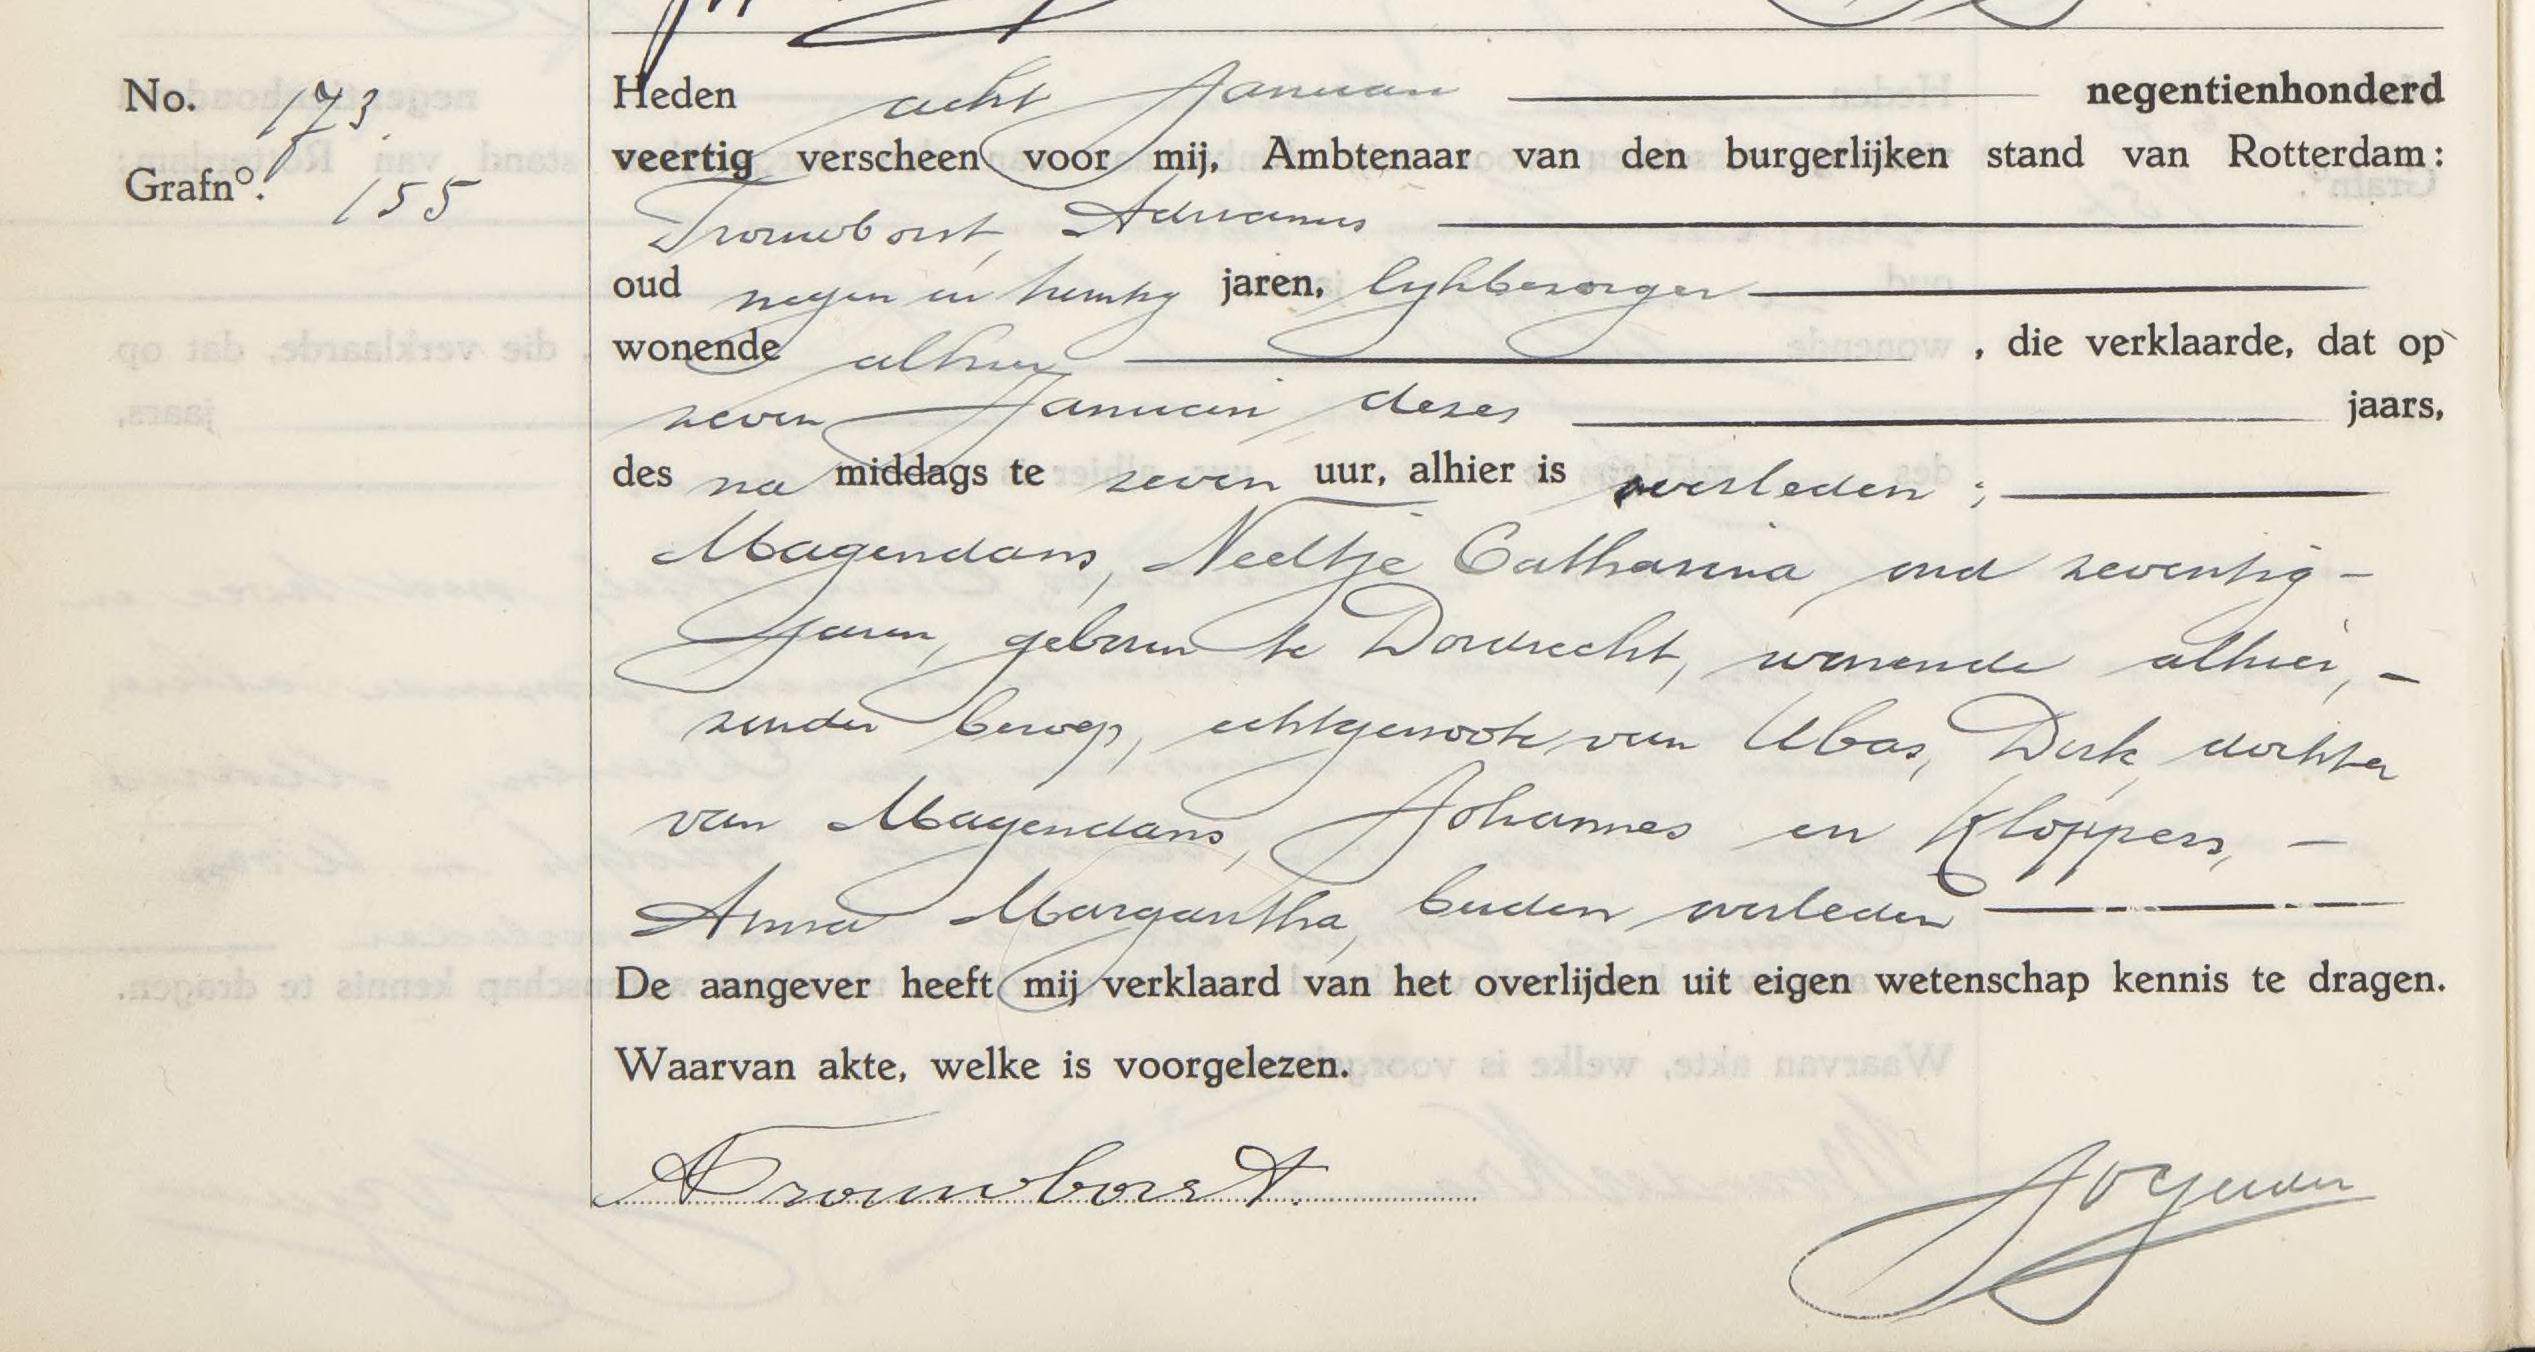 No. 173.
Grafnº. 155
Heden acht Januari negentienhonderd
veertig verscheen voor mij, Ambtenaar van den burgerlijken stand van Rotterdam:
Trouwborst, Adrianus
oud negen en twintig jaren, lijkbezorger
wonende alhier, die verklaarde, dat op
zeven Januari dezes jaars,
des na middags te zeven uur, alhier is overleden:
Magendans, Neeltje Catharina oud zeventig -
jaren, geboren te Dordrecht, wonende alhier, -
zonder beroep, echtgenoote van Ubas, Dirk dochter
van Magendans, Johannes en Kloppers, -
Anna Margaretha, beiden overleden
De aangever heeft mij verklaard van het overlijden uit eigen wetenschap kennis te dragen.
Waarvan akte, welke is voorgelezen.
A Trouwborst.